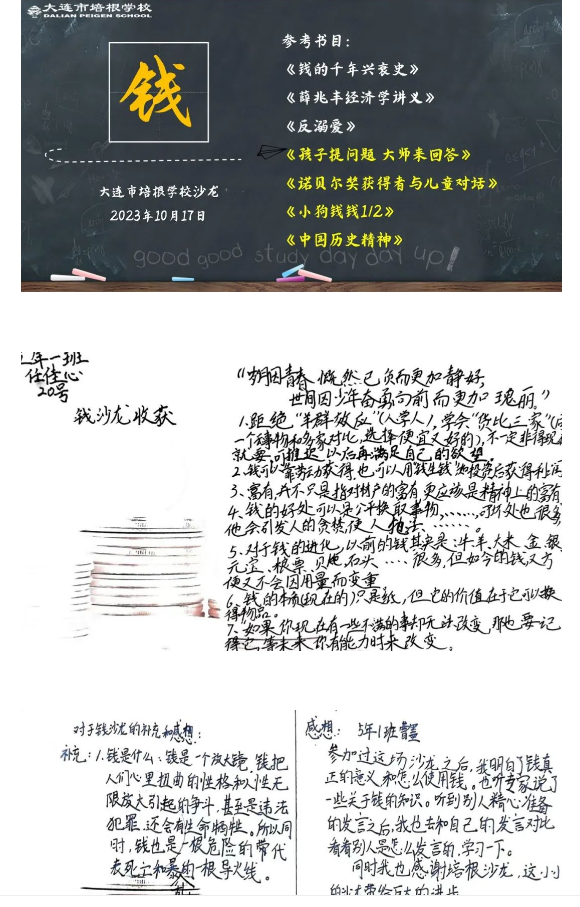 大连市培根学校
DALIAN PEIGEN SCHOOL
钱
大连市培根学校沙龙
2023年10月17日
参考书目：
《钱的千年兴衰史》
《薛兆丰经济学讲义》
《反溺爱》
《孩子提问题 大师来回答》
《诺贝尔奖获得者与儿童对话》
《小狗钱钱1/2》
《中国历史精神》
good good study day day up!
年一班
任佳心
20号
钱沙龙收获
青春 慨然已负而更加静好，
世间因少年奋勇向前而更加 瑰丽。”
1.距绝“羊群效应”(人学人)，学会“货比三家”(
一个事物和多家对比，选择便宜又好的)，不一定非得现
就要，可推迟以后再满足自己的欲望。
2.钱可以靠劳动获得，也可以用钱生钱 如投资后获得利润
3.富有，并不只是指对财产的富有 更应该是精神上的富有
4.钱的好处可以是公平换取事物，……坏处也很多
他会引发人的贪婪，使人 ……。
5.对于钱的进化，以前的钱其实是：牛.羊.大米.金.银
元宝.粮票.贝壳.石头……很多，但如今的钱又方
便又不会因用量而变重
6.钱的本质(现在的)只是纸，但它的价值在于它可以换
得物品。
7.如果你现在有一些不满的事却无法改变，那也要记
得它，等未来你有能力时来改变。
对于钱沙龙的补充和感想：
补充：1.钱是什么：钱是一个放大镜，钱把
人们心里扭曲的性格和人性无
限放大引起的争斗，甚至是违法
犯罪，还会有生命牺牲。所以同
时，钱也是一根危险的带代
表死亡和暴的一根导火线。
感想： 5年1班
参加过这场沙龙之后，我明白了钱真
正的意义和怎么使用钱。也听专家说了
一些关于钱的知识。听到别人精心准备
的发言之后，我也去和自己的发言对比
看看别人是怎么发言的，学习一下。
同时我也感谢培根沙龙，这小小
的沙龙带给巨大的进步